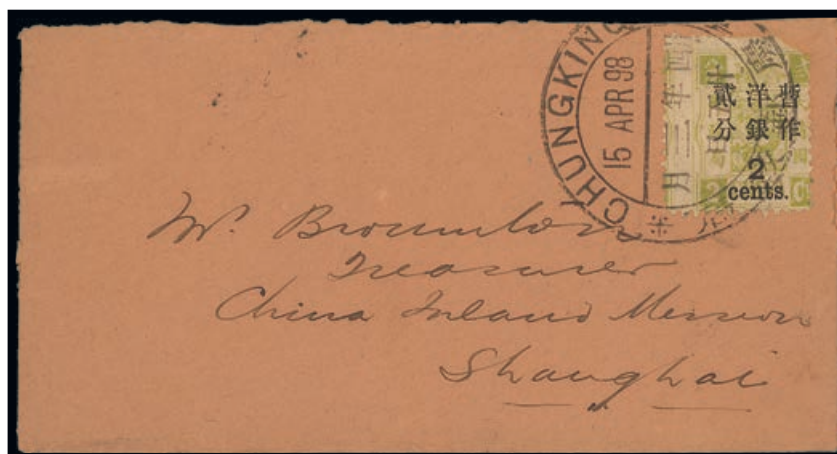 CHUNGKING
15 APR 98
年四
三月
暫作
洋銀
貳分
2
cents.
Mr. Brounton
Treasurer
China Inland Mission
Shanghai